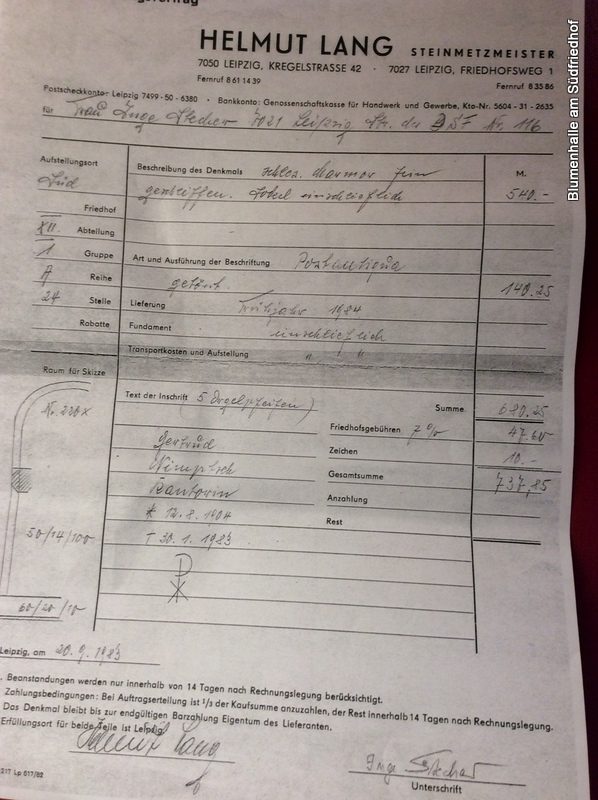 HELMUT LANG STEINMETZMEISTER
7050 LEIPZIG, KREGELSTRASSE 42 · 7027 LEIPZIG, FRIEDHOFSWEG 1
Fernruf 8 61 14 39 Fernruf 8 35 86
Postscheckkonto: Leipzig 7499-50-6380 · Bankkonto: Genossenschaftskasse für Handwerk und Gewerbe, Kto-Nr. 5604-31-2635
für Frau Inge Stecher 7021 Leipzig Str. der DSF Nr. 116
Aufstellungsort Beschreibung des Denkmals schles. Marmor fein M.
Süd geschliffen. Sockel einschließlich 540.-
Friedhof
XII. Abteilung
1 Gruppe Art und Ausführung der Beschriftung Postantiqua
A Reihe getönt. 140.25
24 Stelle Lieferung Frühjahr 1984
Rabatte Fundament einschließlich
Transportkosten und Aufstellung " " "
Raum für Skizze
Text der Inschrift (5 Orgelpfeifen) Summe 680.25
Nr. 220x Friedhofsgebühren 7% 47.60
Gertrud Zeichen 10.-
Nimptsch Gesamtsumme 737,85
Kantorin Anzahlung
* 12.8.1904 Rest
50/14/100 † 30.1.1983
60/20/10
Leipzig, am 20.9.1983
Beanstandungen werden nur innerhalb von 14 Tagen nach Rechnungslegung berücksichtigt.
Zahlungsbedingungen: Bei Auftragserteilung ist 1/3 der Kaufsumme anzuzahlen, der Rest innerhalb 14 Tagen nach Rechnungslegung.
Das Denkmal bleibt bis zur endgültigen Barzahlung Eigentum des Lieferanten.
Erfüllungsort für beide Teile ist Leipzig.
Helmut Lang
Inge Stecher
Unterschrift
217 Lp 617/82
Blumenhalle am Südfriedhof